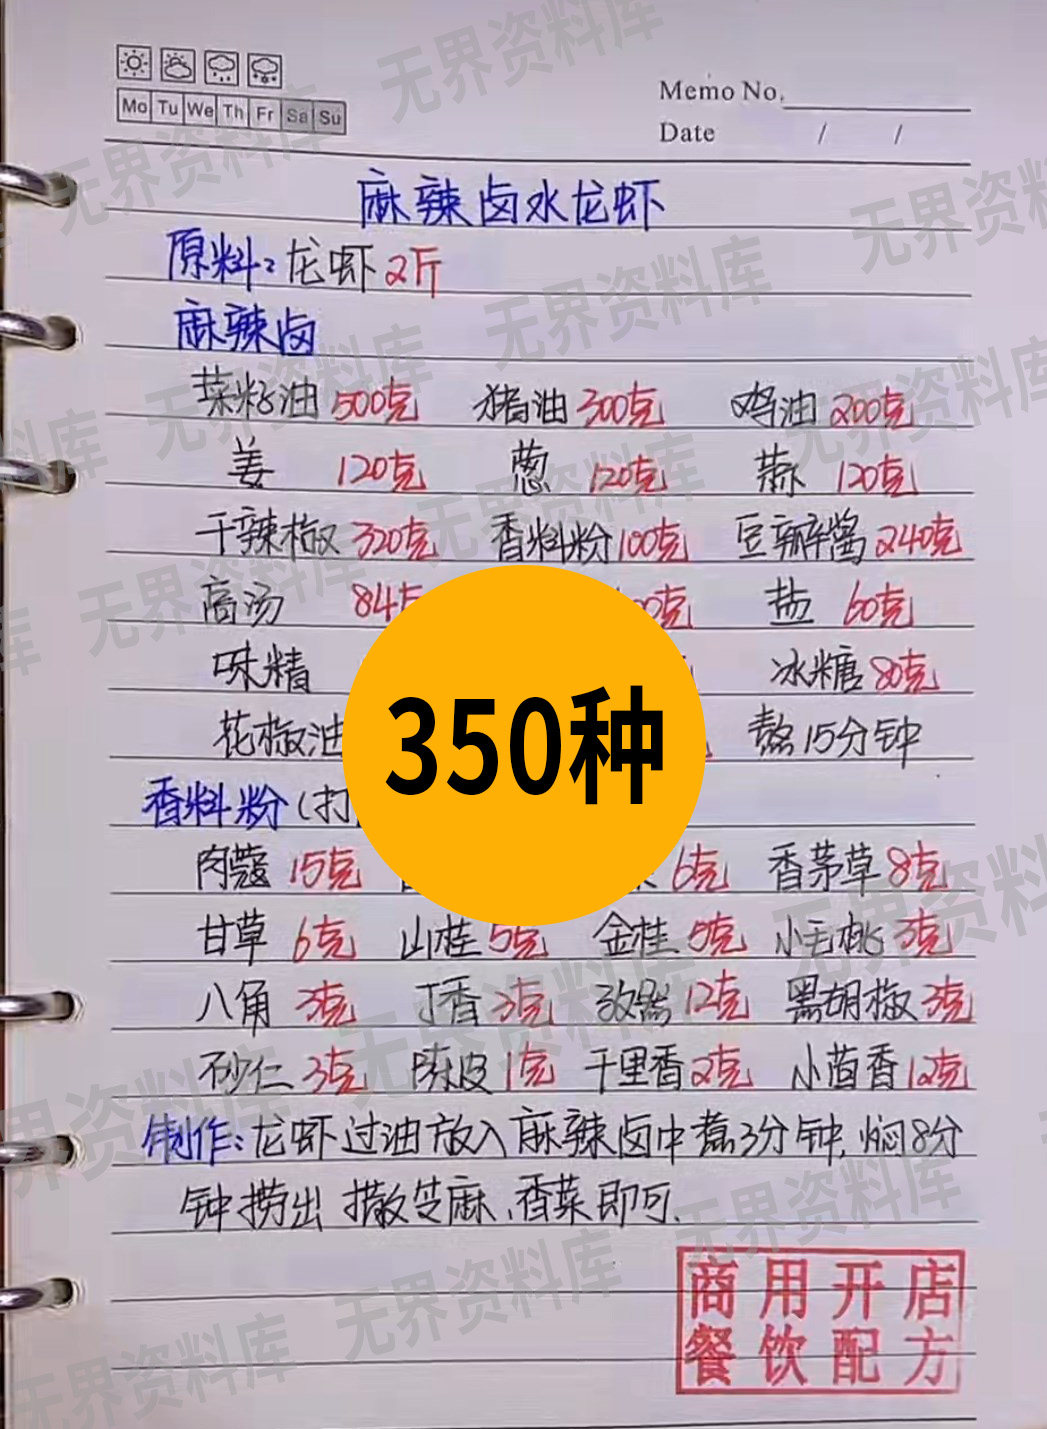 Memo No.
Mo Tu We Th Fr Sa Su
Date / /
麻辣卤水龙虾
原料:龙虾2斤
麻辣卤
菜籽油500克 猪油300克 鸡油200克
姜 120克 葱 120克 蒜 120克
干辣椒320克 香料粉100克 豆瓣酱240克
高汤 克 盐 60克
味精 冰糖80克
花椒油 熬15分钟
350种
香料粉(打
肉蔻15克 6克 香茅草8克
甘草6克 山桂5克 金桂5克 小毛桃3克
八角3克 丁香3克 12克 黑胡椒3克
砂仁3克 陈皮1克 千里香2克 小茴香12克
制作:龙虾过油放入麻辣卤中煮3分钟,焖8分
钟捞出撒芝麻、香菜即可.
商用开店
餐饮配方
无界资料库